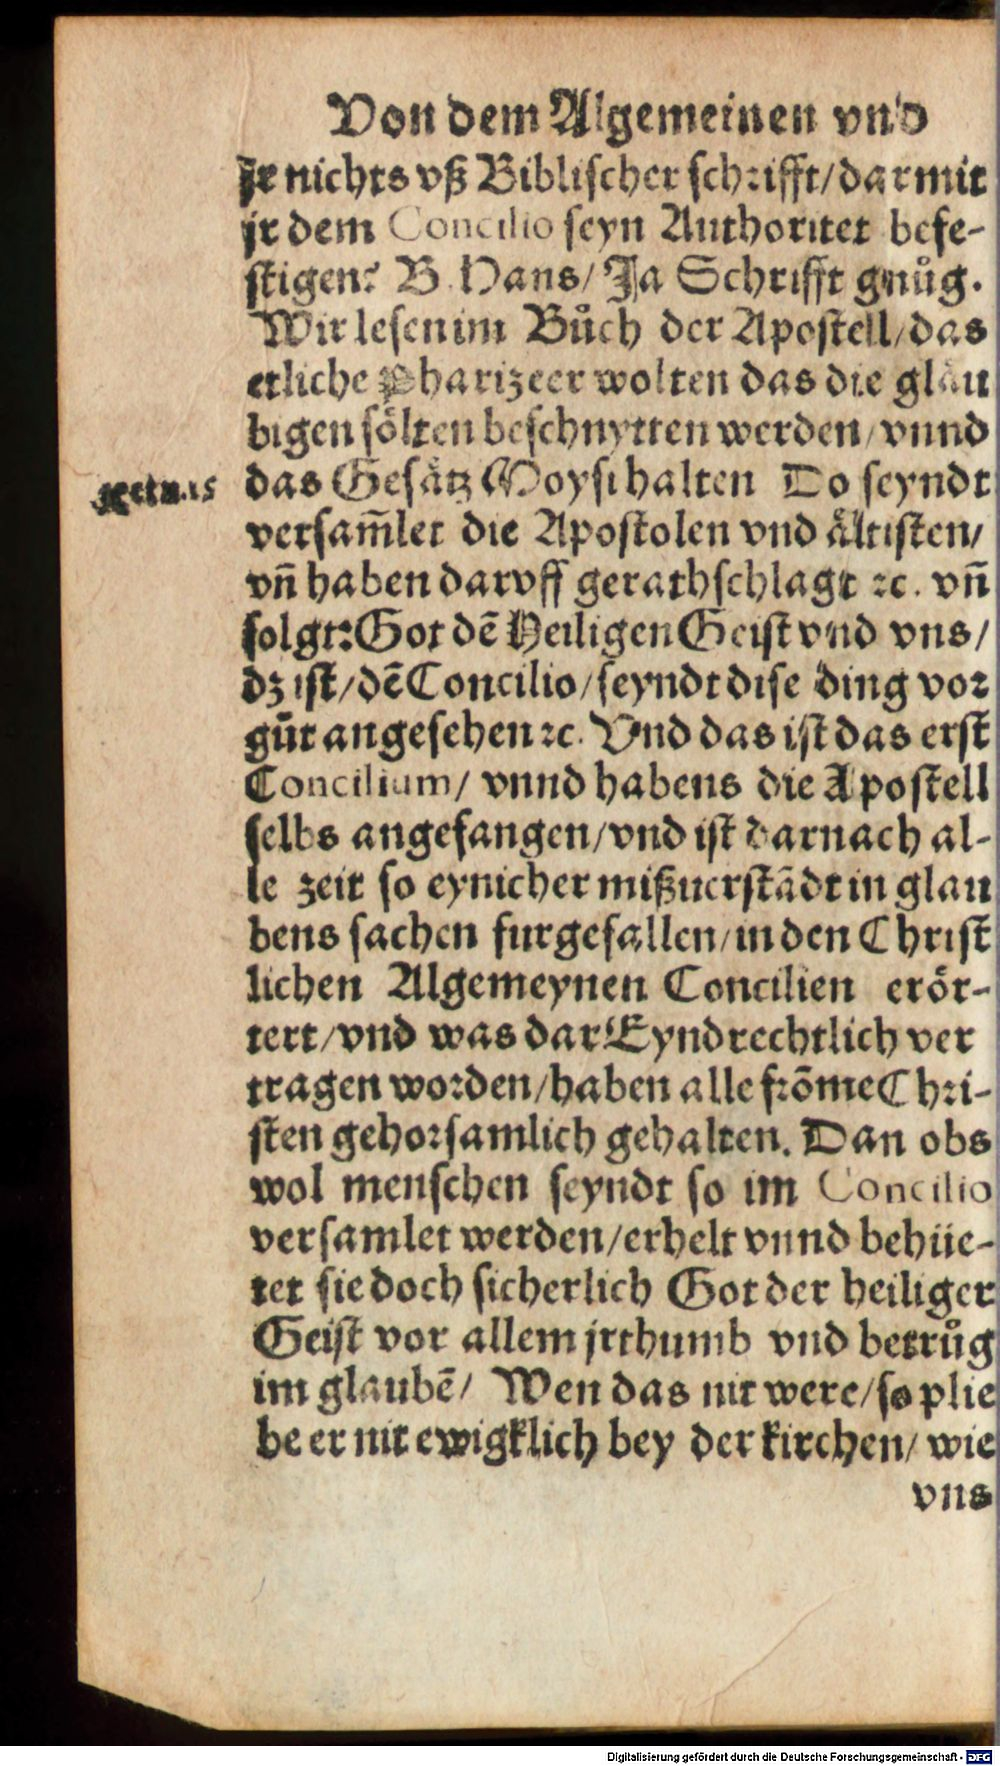 Von dem Algemeinen vnd
Ir nichts vß Biblischer schrifft/ darmit
jr dem Concilio seyn Authoritet befe-
stigen? B. Hans/ Ja Schrifft gnůg.
Wir lesen im Bůch der Apostell/ das
etliche Pharizeer wolten das die gläu
bigen sölten beschnytten werden/ vnnd
das Gesätz Moysi halten Do seyndt
Actu. 15
versam̄let die Apostolen vnd ältisten/
vn̄ haben darvff gerathschlagt ꝛc. vn̄
folgt: Got dē Heiligen Geist vnd vns/
dz ist/ dē Concilio/ seyndt dise ding vor
gůt angesehen ꝛc. Vnd das ist das erst
Concilium/ vnnd habens die Apostell
selbs angefangen/ vnd ist darnach al-
le zeit so eynicher mißuerstādt in glau
bens sachen furgefallen/ in den Christ
lichen Algemeynen Concilien erör-
tert/ vnd was dar Eyndrechtlich ver
tragen worden/ haben alle frōme Chri-
sten gehorsamlich gehalten. Dan obs
wol menschen seyndt so im Concilio
versamlet werden/ erhelt vnnd behüe-
tet sie doch sicherlich Got der heiliger
Geist vor allem jrthumb vnd betrůg
im glaubē/ Wen das nit were/ so plie
be er nit ewigklich bey der kirchen/ wie
vns
Digitalisierung gefördert durch die Deutsche Forschungsgemeinschaft - DFG